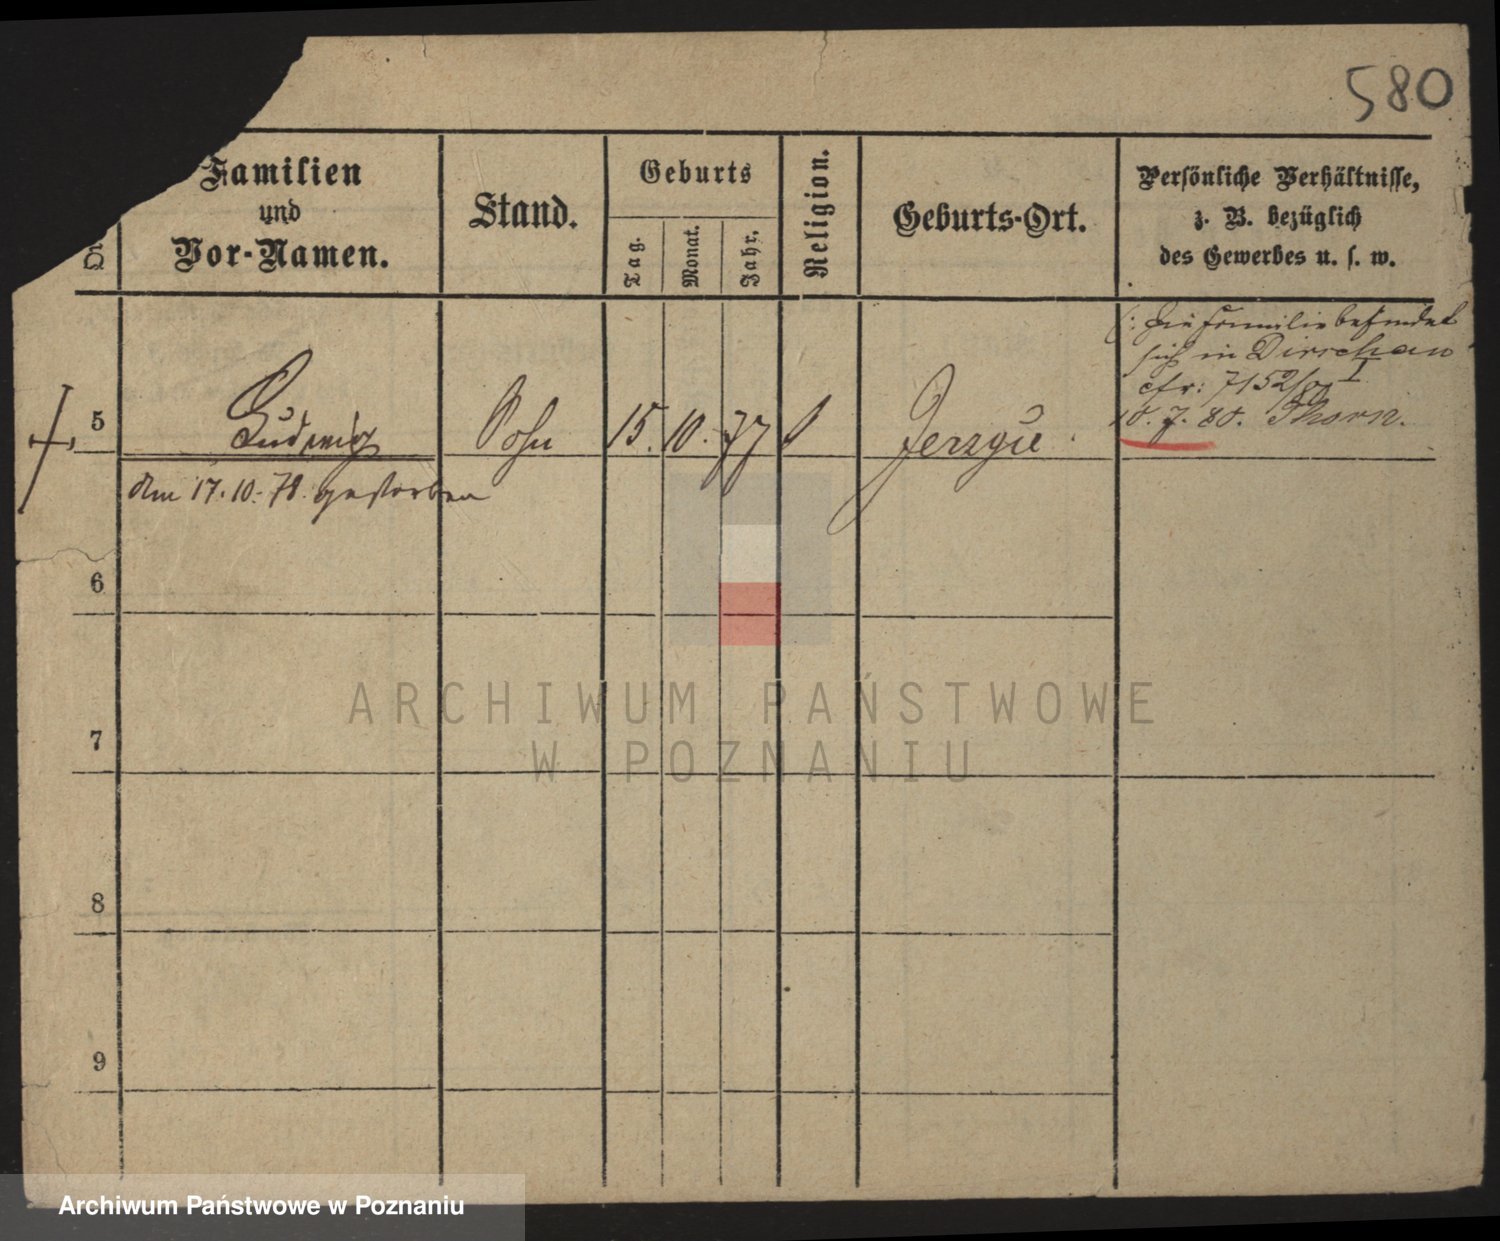 580
Familien
und
Vor-Namen.
Stand.
Geburts
Tag.
Monat.
Jahr.
Religion.
Geburts-Ort.
Persönliche Verhältnisse,
z. B. bezüglich
des Gewerbes u. s. w.
Die Familie befindet
sich in Dirschau
cfr: 7152/80 I
10. 7. 80. Thorn.
5 Ludwig Sohn 15. 10. 77 Jerzyce
den 17. 10. 78. gestorben
6
7
8
9
ARCHIWUM PAŃSTWOWE
W POZNANIU
Archiwum Państwowe w Poznaniu